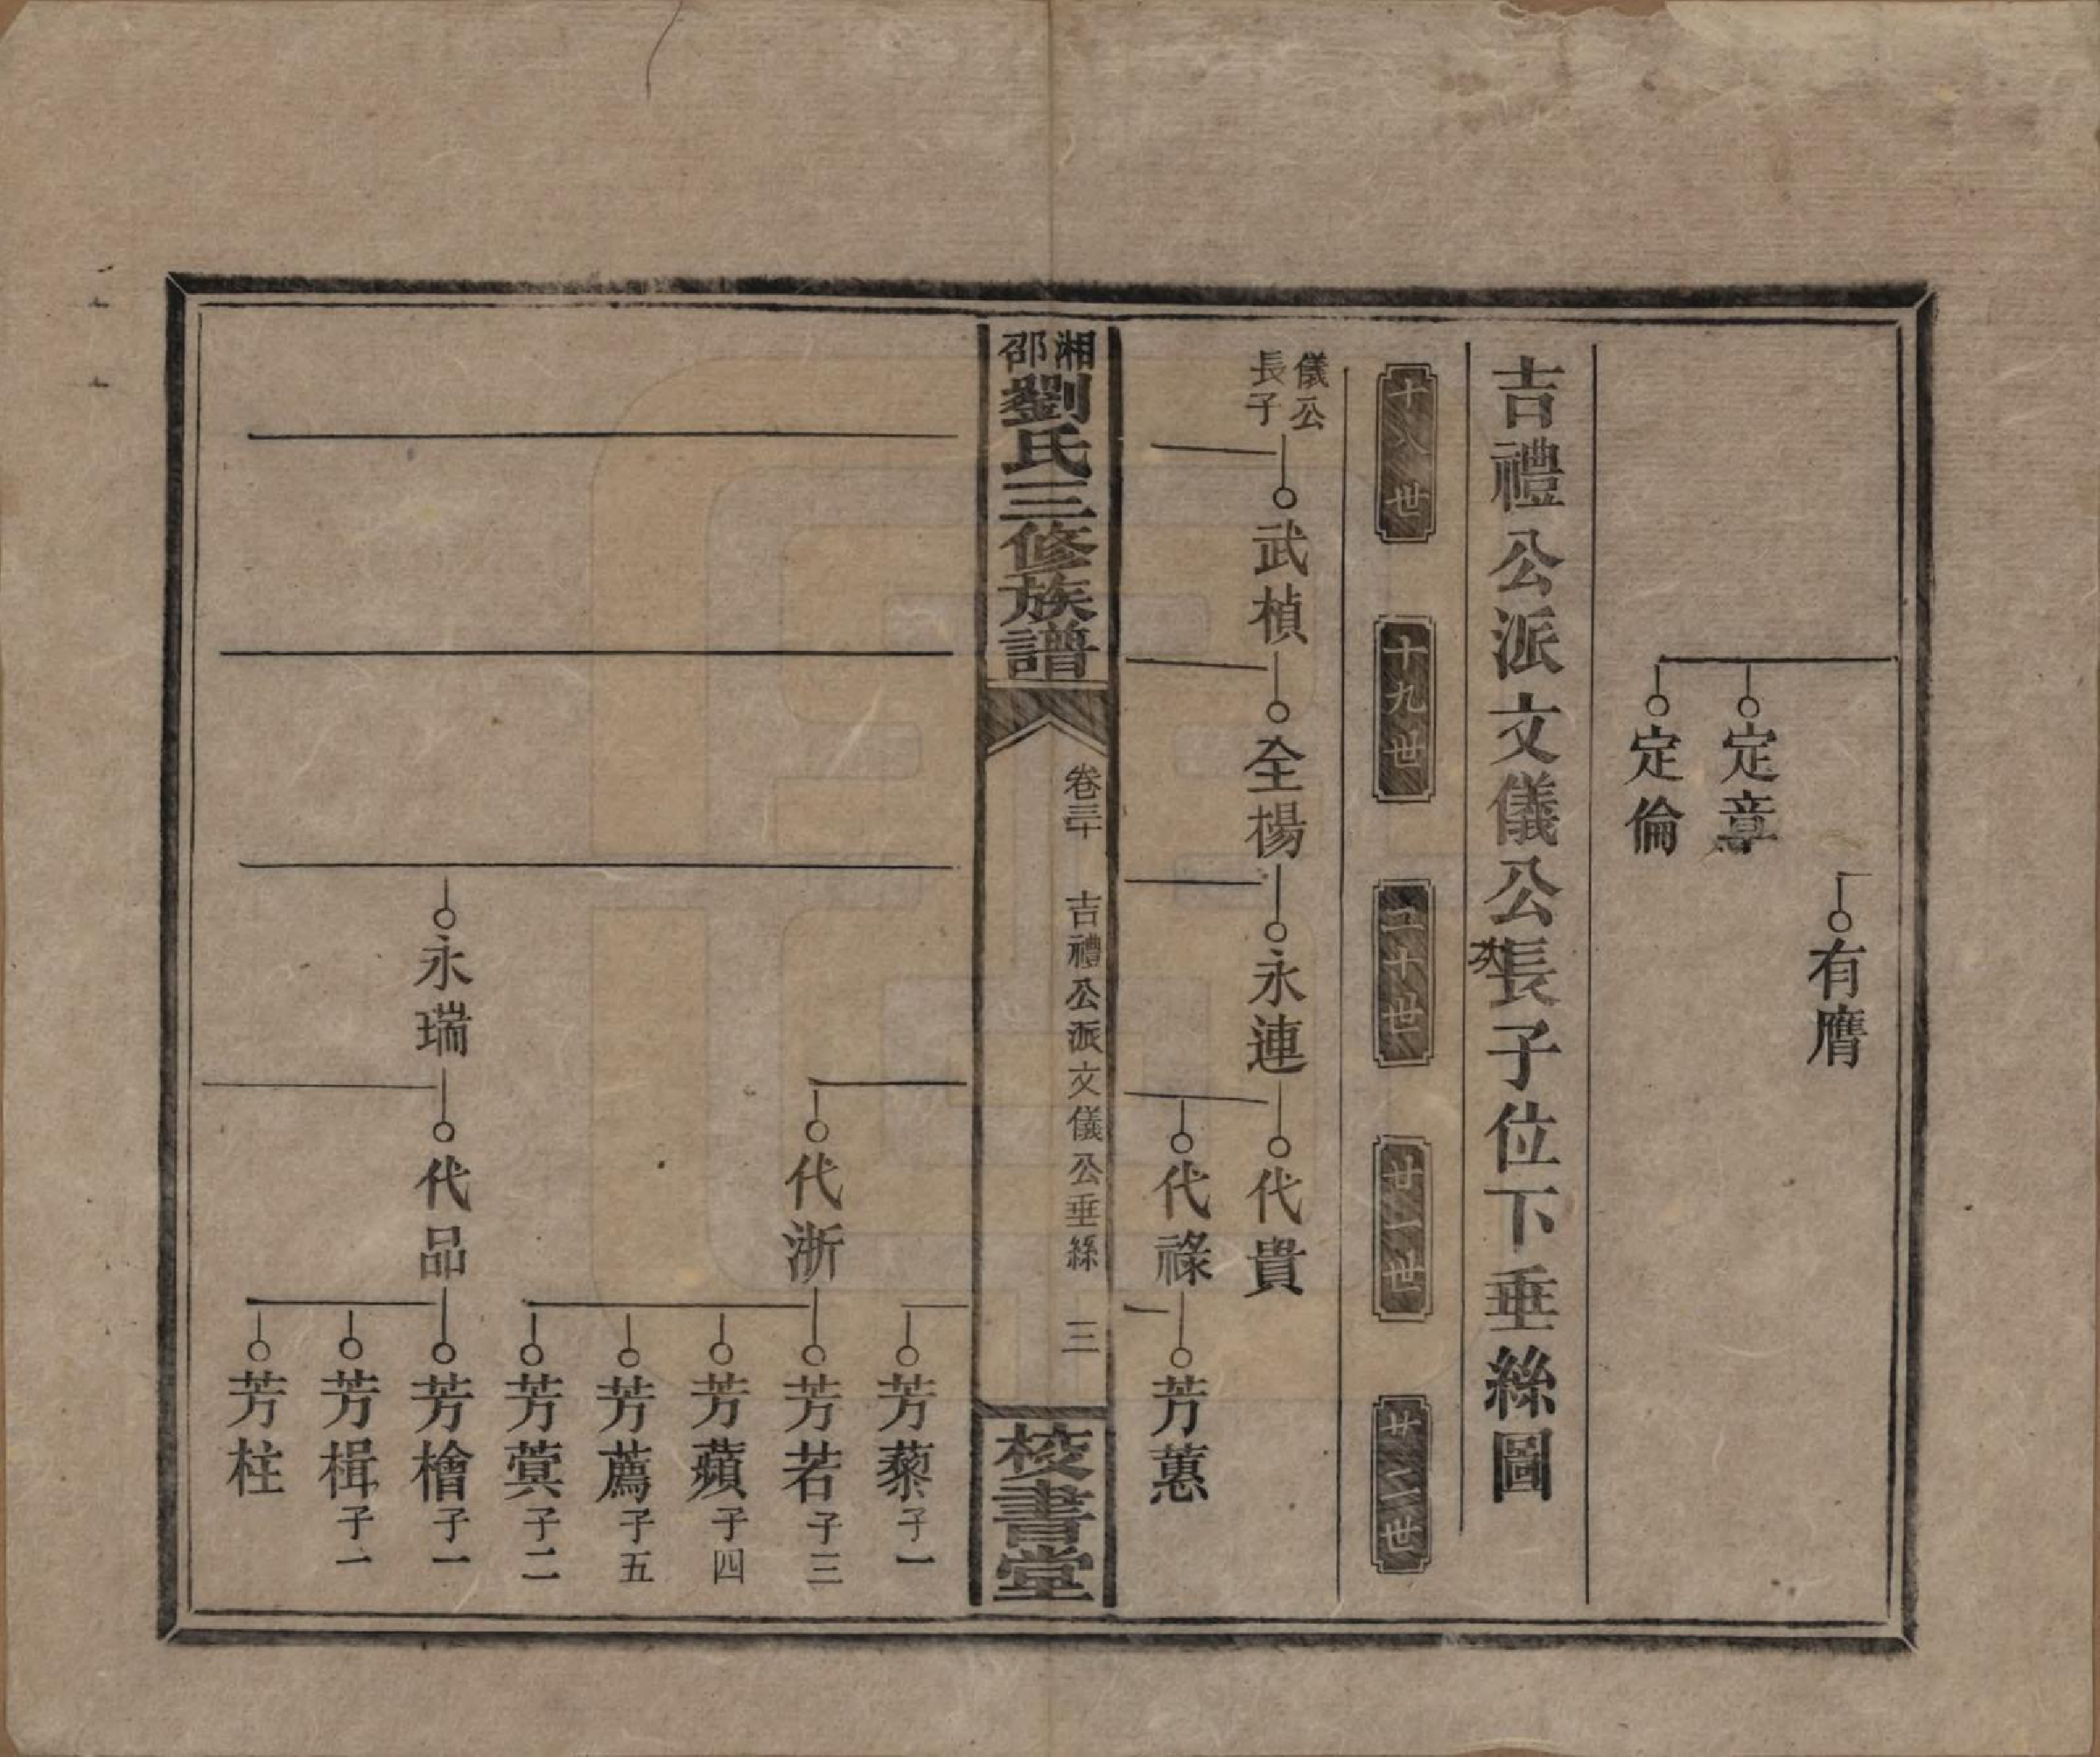 有膺
定章
定倫
吉禮公派文儀公長子位下垂絲圖
十八世
十九世
二十世
廿一世
廿二世
儀公
長子
武楨
全楊
永連
代貴
代祿
芳蕙
湘
邵
劉氏三修族譜
卷三十
吉禮公派文儀公垂絲
三
校書堂
芳藜子一
代浙
芳若子三
芳蘋子四
芳薦子五
芳蓂子二
永瑞
代品
芳檜子一
芳楫子一
芳柱